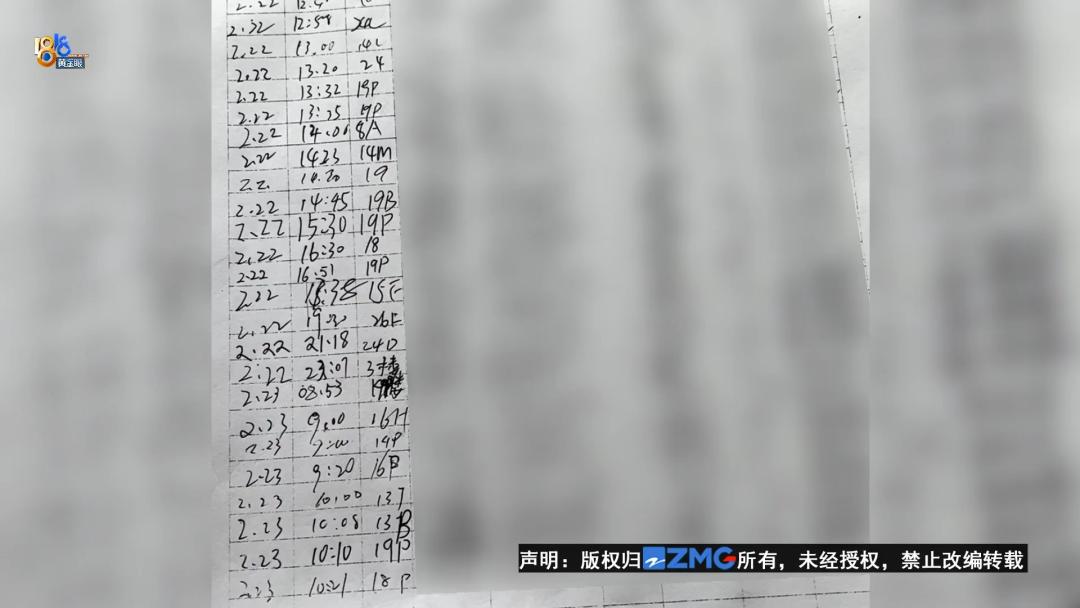 1818
黄金眼
2.22 12:58
2.22 13.00 14L
2.22 13.20 24
2.22 13:32 19P
2.22 13:25 19P
2.22 14.01 8A
2.22 1423 14M
14.30 19
2.22 14:45 19B
2.22 15:30 19P
2.22 16:30 18
2.22 16.51 19P
2.22 18:38
2.22 26E
2.22 21.18 24D
2.22 23:07
2.23 08.53
2.23 9.00 16H
2.23 19P
2.23 9:20 16B
2.23 10.00
2.23 10:08 13B
2.23 10:10 19P
10:21 18P
声明：版权归ZMG所有，未经授权，禁止改编转载